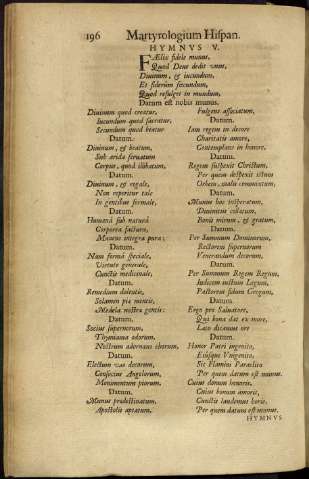 196 Martyrologium Hispan.
HYMNUS V.
Fælix fidele munus,
Quod Deus dedit unus,
Divinum, & iucundum,
Et siderum secundum,
Quod refulget in mundum,
Datum est nobis munus.
Divinum quod creatur,
Iucundum quod sacratur,
Secundum quod beatur
Datum.
Divinum, & beatum,
Sub arida servatum
Corpus, quod illibatum,
Datum.
Divinum, & regale,
Non reperitur tale
In gentibus formale,
Datum.
Humana sub natura
Corporea factura,
Munens integra pura;
Datum.
Nam forma speciale,
Virtute generale,
Cunctis medicinale,
Datum.
Remedium doloris,
Solamen pia mentis,
Medela nostra gentis:
Datum.
Socius supernorum,
Thymiama odorum,
Nostrum adornans thorum,
Datum.
Electum vas decorum,
Consocius Angelorum,
Monimentum piorum.
Datum.
Munus predestinatum,
Apostolis aptatum.
Fulgens associatum,
Datum.
Iam regem in decore
Charitatis amore,
Contemplans in honore,
Datum.
Regem suspexit Christum,
Per quem despexit istum
Orbem, malis commixtum,
Datum.
Munus hoc insperatum,
Divinitus collatum,
Bonis mirum, & gratum,
Datum.
Per Summum Dominorum,
Rectorem supernorum
Venerandum decorum,
Datum.
Per Summum Regem Regum,
Iudicem iustum Legum,
Pastorem solum Gregum,
Datum.
Ergo pro Salvatore,
Qui bona dat ex more,
Laus dicamus ore
Datum.
Honor Patri ingenito,
Eiusque Unigenito,
Sit Flamini Paraclito
Per quem datum est munus.
Cuius donum honoris,
Cuius bonum amoris,
Cunctis laudemus horis,
Per quem datum est munus.
HYMNUS